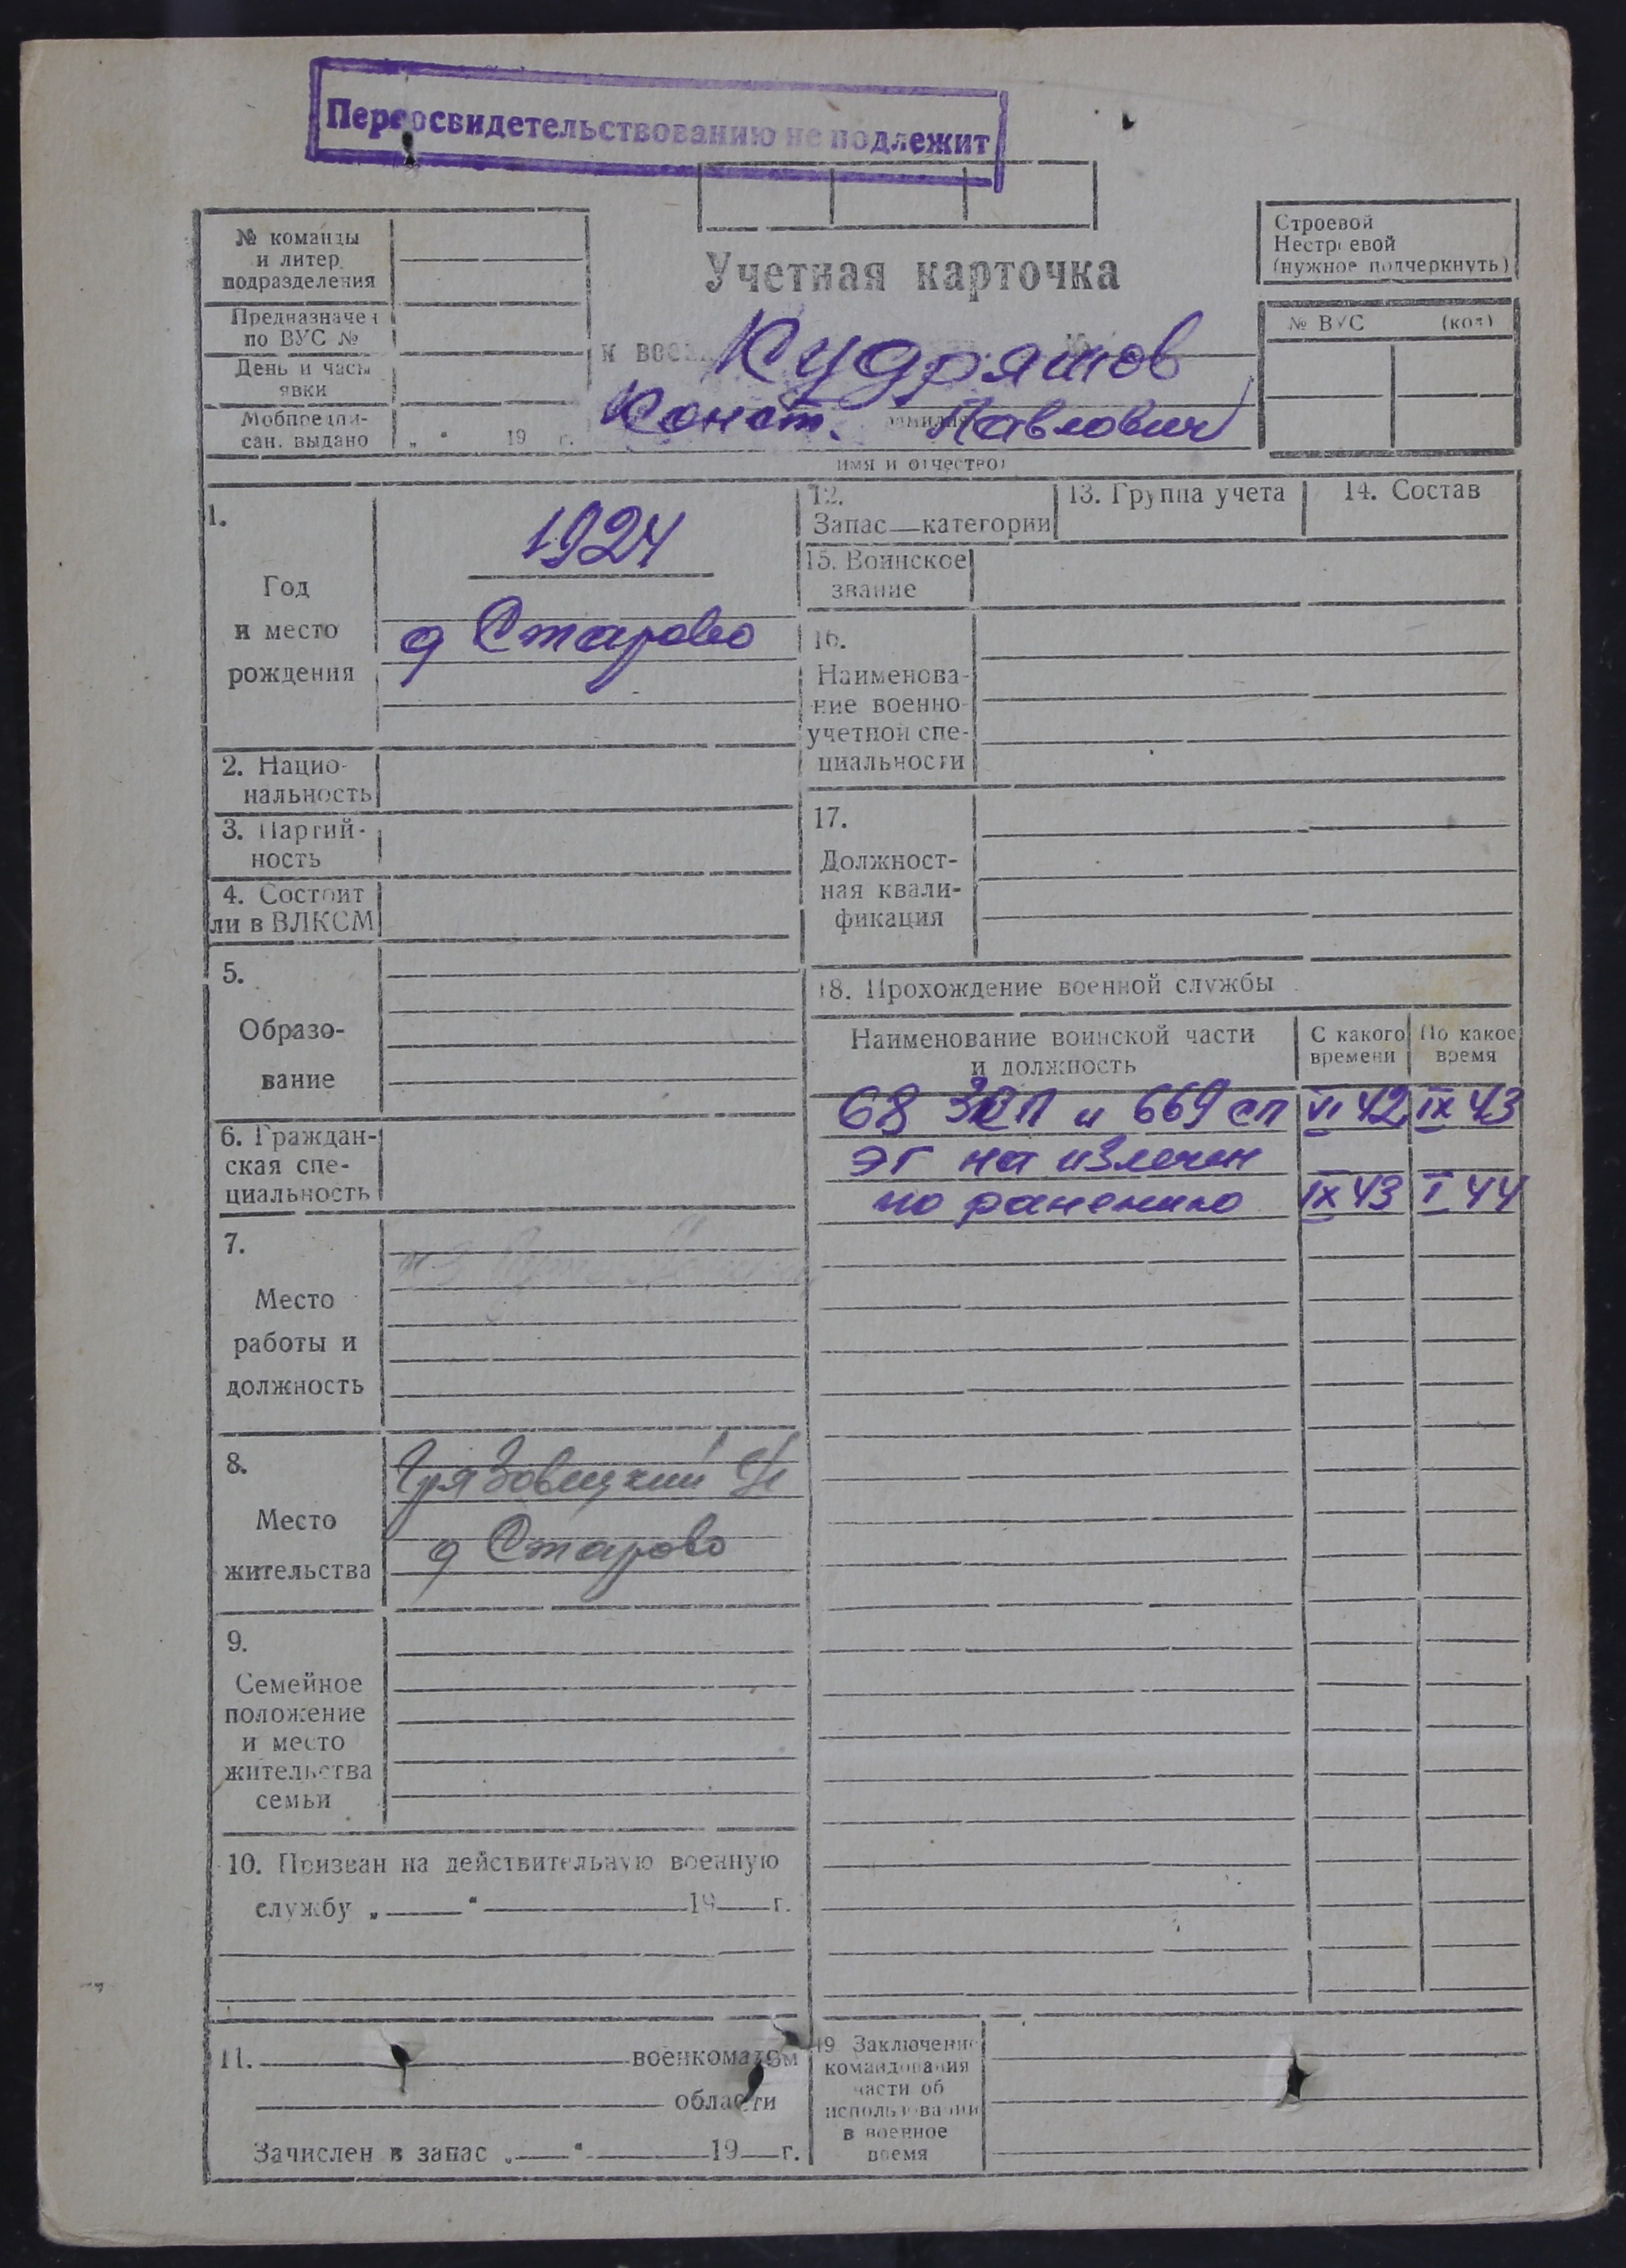 Переосвидетельствованию не подлежит
№ команды
и литер
подразделения
Предназначен
по ВУС №
День и часы
явки
Мобпредпи-
сан. выдано „ “ 19 г.
Учетная карточка
к
Кудряшов
Конст. Павлович
фамилия
имя и отчество)
Строевой
Нестроевой
(нужное подчеркнуть)
№ ВУС (код)
1.
Год
и место
рождения
1924
д Старово
2. Нацио-
нальность
3. Партий-
ность
4. Состоит
ли в ВЛКСМ
5.
Образо-
вание
6. Граждан-
ская спе-
циальность
7.
Место
работы и
должность
8.
Место
жительства
Грязовецкий
д Старово
9.
Семейное
положение
и место
жительства
семьи
10. Призван на действительную военную
службу „ “ 19 г.
11. военкоматом
области
Зачислен в запас „ “ 19 г.
12.
Запас—категории
13. Группа учета
14. Состав
15. Воинское
звание
16.
Наименова-
ние военно-
учетной спе-
циальности
17.
Должност-
ная квали-
фикация
18. Прохождение военной службы
Наименование воинской части
и должность
С какого
времени
По какое
время
68 ЗСП и 669 сп VI 42 IX 43
ЭГ на излечен
по ранению IX 43 I 44
19 Заключение
командования
части об
использовании
в военное
время